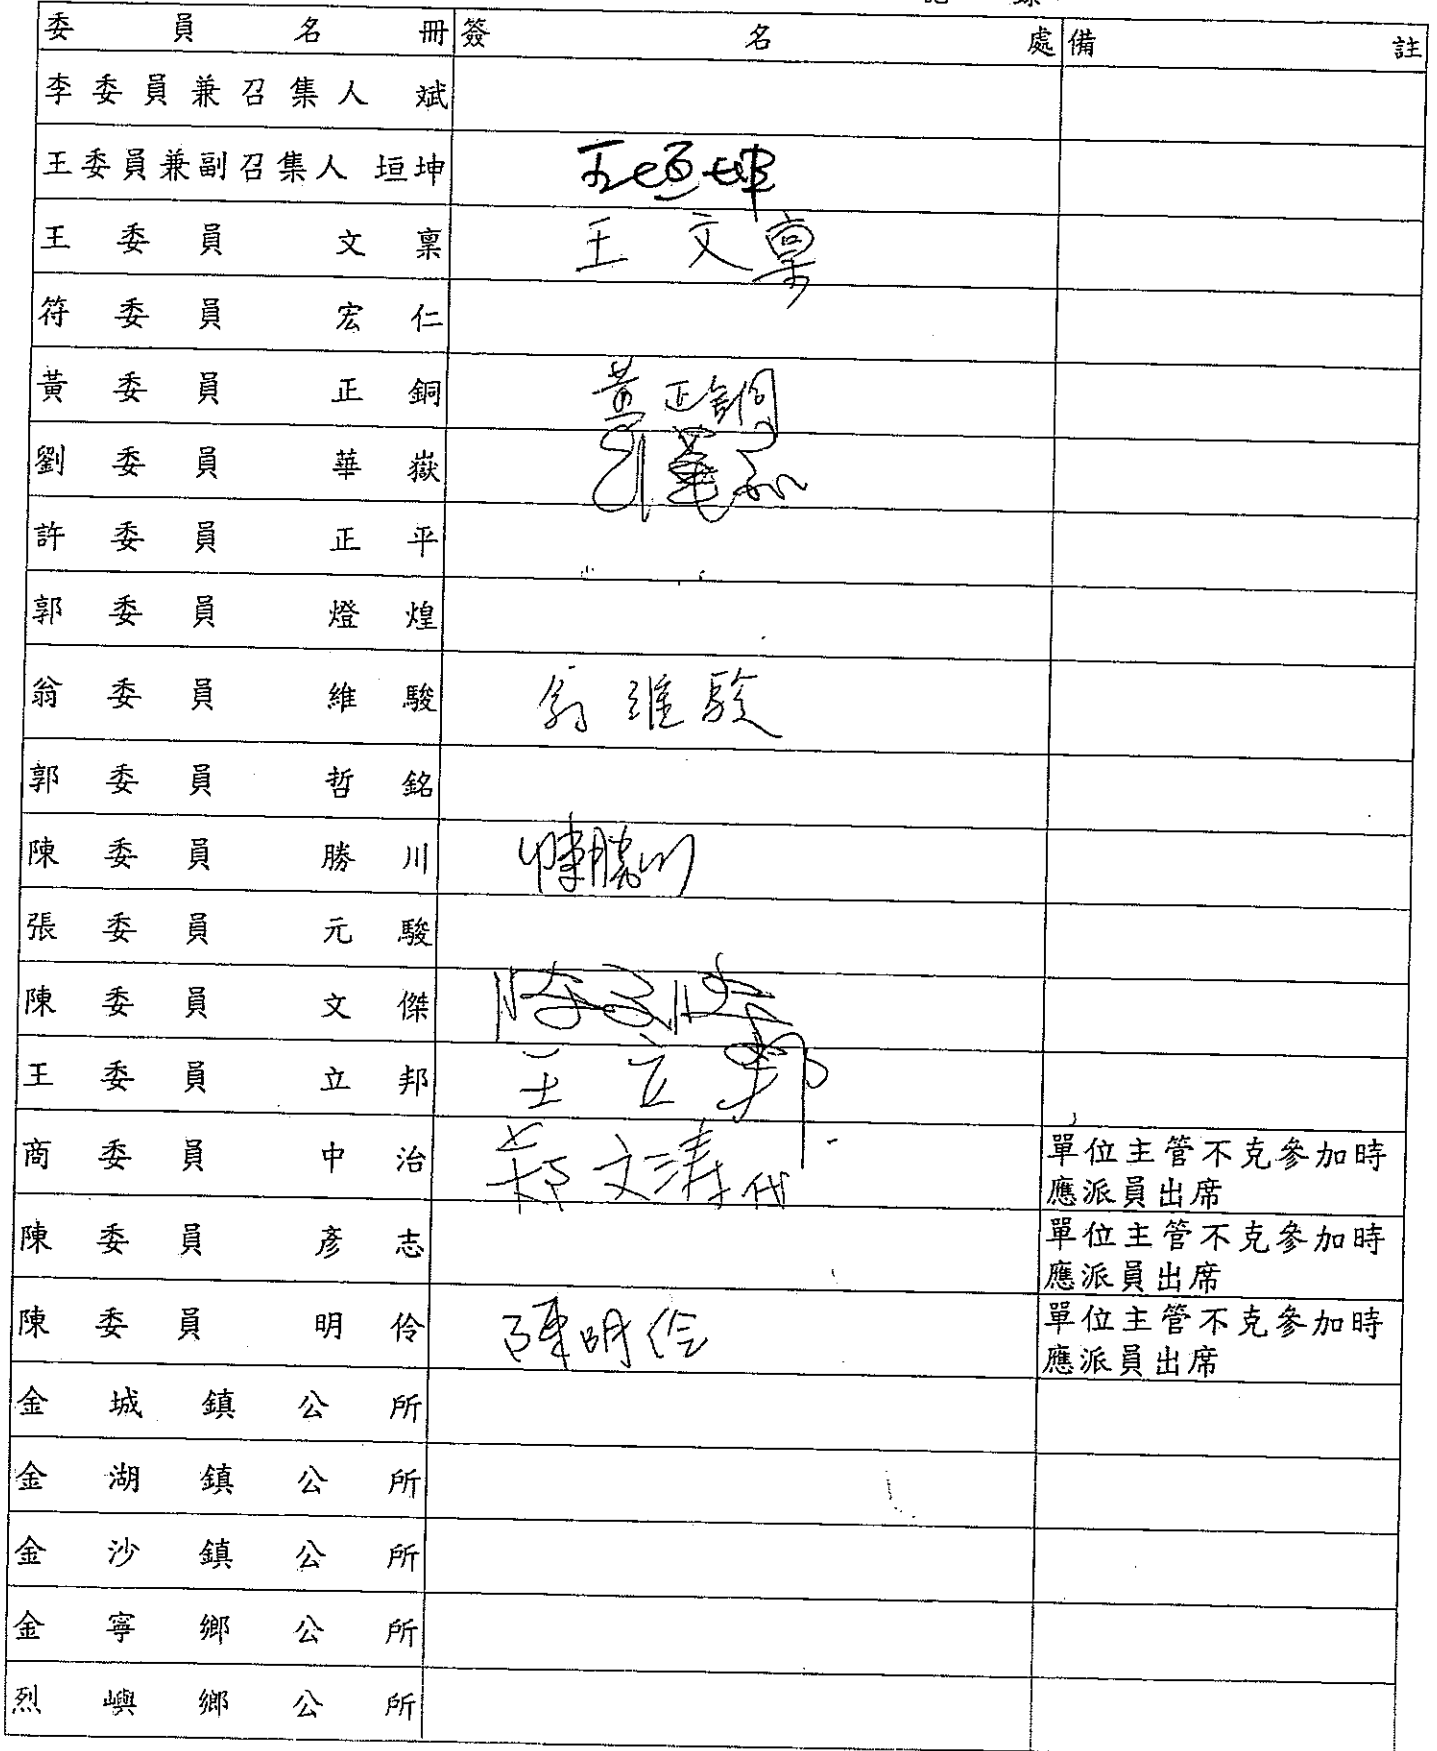 委員名冊 簽名處 備註
李委員兼召集人 斌
王委員兼副召集人 垣坤 王垣坤
王委員 文稟 王文稟
符委員 宏仁
黃委員 正銅 黃正銅
劉委員 華嶽 劉華嶽
許委員 正平
郭委員 燈煌
翁委員 維駿 翁維駿
郭委員 哲銘
陳委員 勝川 陳勝川
張委員 元駿
陳委員 文傑 陳文傑
王委員 立邦 王立邦
商委員 中治 文濤代 單位主管不克參加時
應派員出席
陳委員 彥志 單位主管不克參加時
應派員出席
陳委員 明伶 陳明伶 單位主管不克參加時
應派員出席
金城鎮公所
金湖鎮公所
金沙鎮公所
金寧鄉公所
烈嶼鄉公所